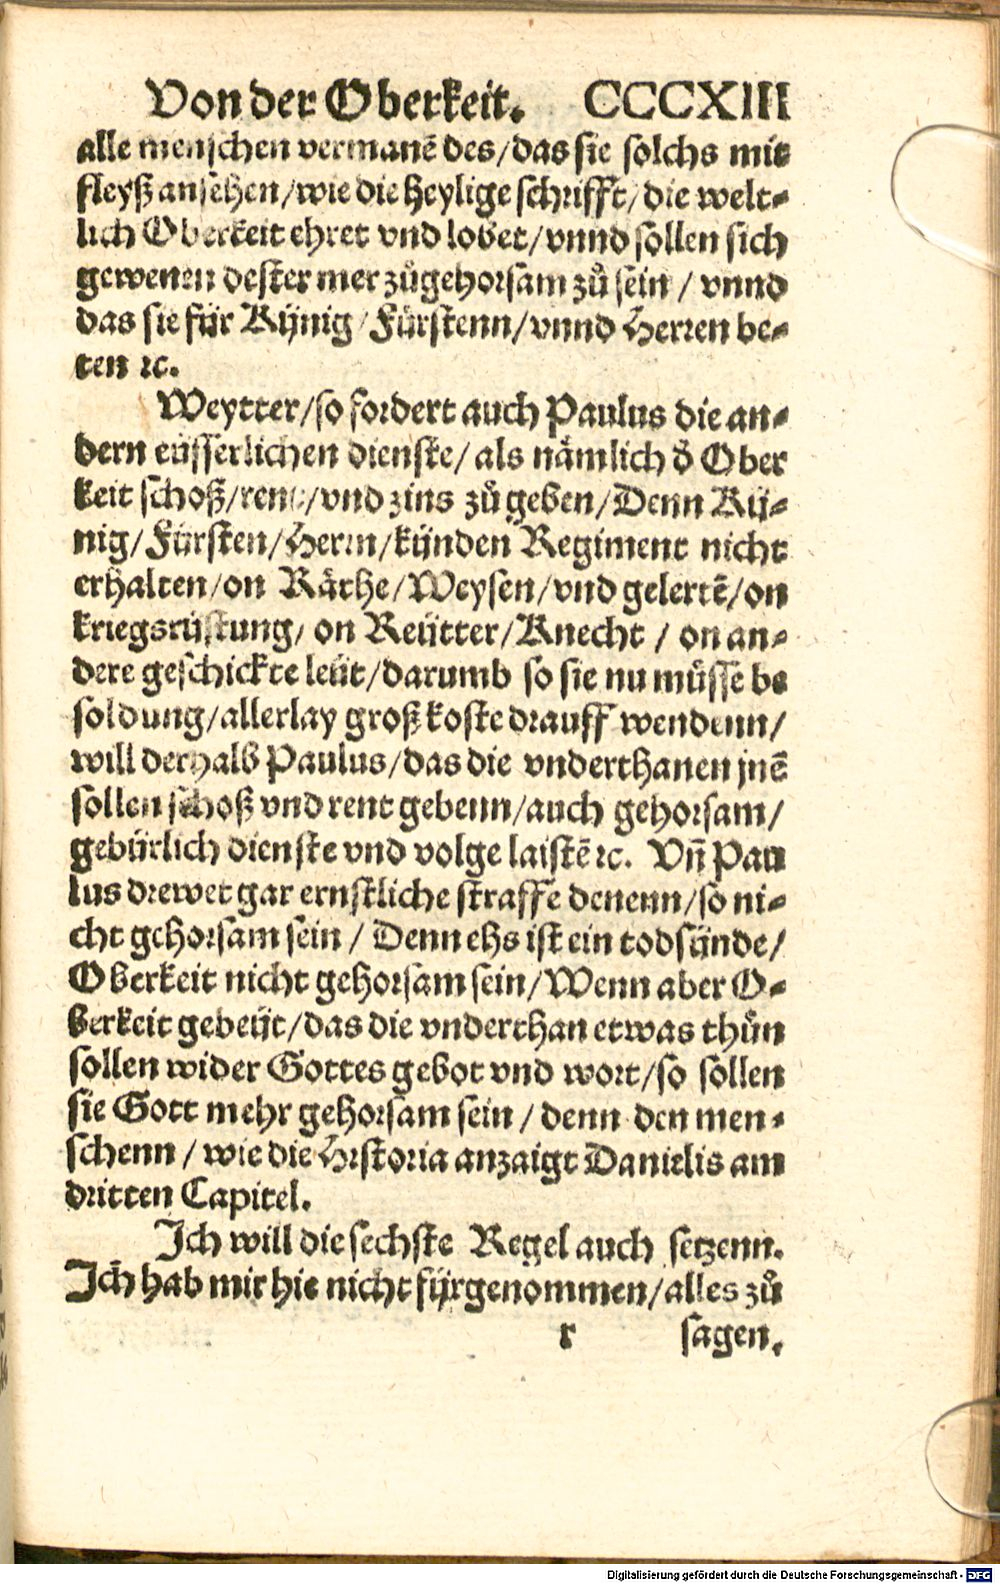 Von der Oberkeit. CCCXIII
alle menschen vermanē des/das sie solchs mit
fleyß ansehen/wie die heylige schrifft/die welt-
lich Oberkeit ehret vnd lobet/vnnd sollen sich
gewenen dester mer zůgehorsam zů sein / vnnd
das sie für Künig/Fürstenn/vnnd Herren be-
ten ꝛc.
Weytter/so fordert auch Paulus die an-
dern eüsserlichen dienste/als nämlich d̕ Ober
keit schoß/rent/vnd zins zů geben/Denn Kü-
nig/Fürsten/Herrn/künden Regiment nicht
erhalten/on Räthe/Weysen/vnd gelertē/on
kriegsrüstung/on Reütter/Knecht / on an-
dere geschickte leüt/darumb so sie nu müsse be
soldung/allerlay groß koste drauff wendenn/
will derhalb Paulus/das die vnderthanen jnē
sollen schoß vnd rent gebenn/auch gehorsam/
gebürlich dienste vnd volge laistē ꝛc. Vñ Pau
lus drewet gar ernstliche straffe denenn/so ni-
cht gehorsam sein / Denn ehs ist ein todsünde/
Oberkeit nicht gehorsam sein/Wenn aber O-
berkeit gebeüt/das die vnderthan etwas thůn
sollen wider Gottes gebot vnd wort/so sollen
sie Gott mehr gehorsam sein / denn den men-
schenn / wie die Historia anzaigt Danielis am
dritten Capitel.
Ich will die sechste Regel auch setzenn.
Ich hab mir hie nicht fürgenommen/alles zů
r sagen.
Digitalisierung gefördert durch die Deutsche Forschungsgemeinschaft - DFG